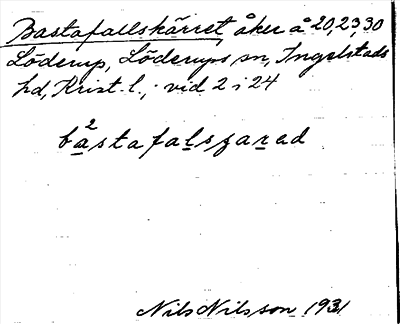 Bastafallskärret, åker å 20, 23, 30
Löderup, Löderups sn, Ingelstads
hd, Krist. l.; vid 2 i 24
b²astafalsʒarad
Nils Nilsson 1931